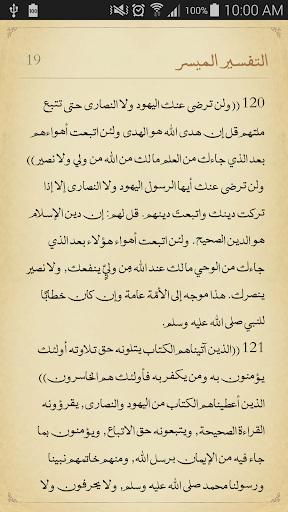 100% 10:00 AM
التفسير الميسر 19
120 ((ولن ترضى عنك اليهود ولا النصارى حتى تتبع
ملتهم قل إن هدى الله هو الهدى ولئن اتبعت أهواءهم
بعد الذي جاءك من العلم مالك من الله من ولي ولا نصير))
ولن ترضى عنك أيها الرسول اليهود ولا النصارى إلا إذا
تركت دينك واتبعتَ دينهم. قل لهم: إن دين الإسلام
هو الدين الصحيح. ولئن اتبعت أهواء هؤلاء بعد الذي
جاءك من الوحي مالك عند الله مِن وليٍّ ينفعك, ولا نصير
ينصرك. هذا موجه إلى الأمّة عامة وإن كان خطابًا
للنبي صلى الله عليه وسلم.
121 ((الذين آتيناهم الكتاب يتلونه حق تلاوته أولئك
يؤمنون به ومن يكفر به فأولئك هم الخاسرون))
الذين أعطيناهم الكتاب من اليهود والنصارى, يقرؤونه
القراءة الصحيحة, ويتبعونه حق الاتباع, ويؤمنون بما
جاء فيه من الإيمان برسل الله, ومنهم خاتمهم نبينا
ورسولنا محمد صلى الله عليه وسلم, ولا يحرفون ولا